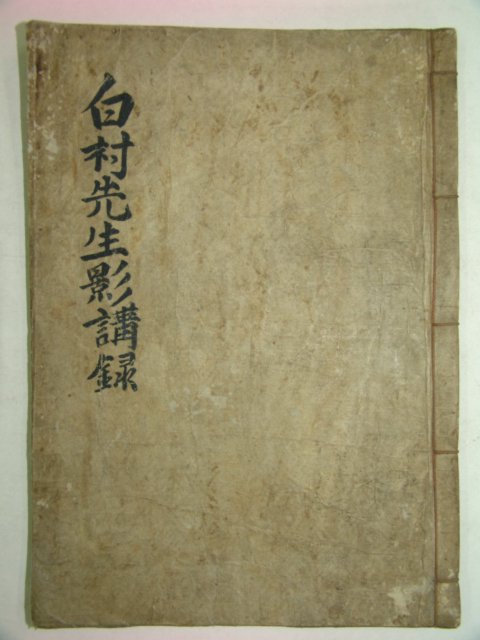 白村先生影講録